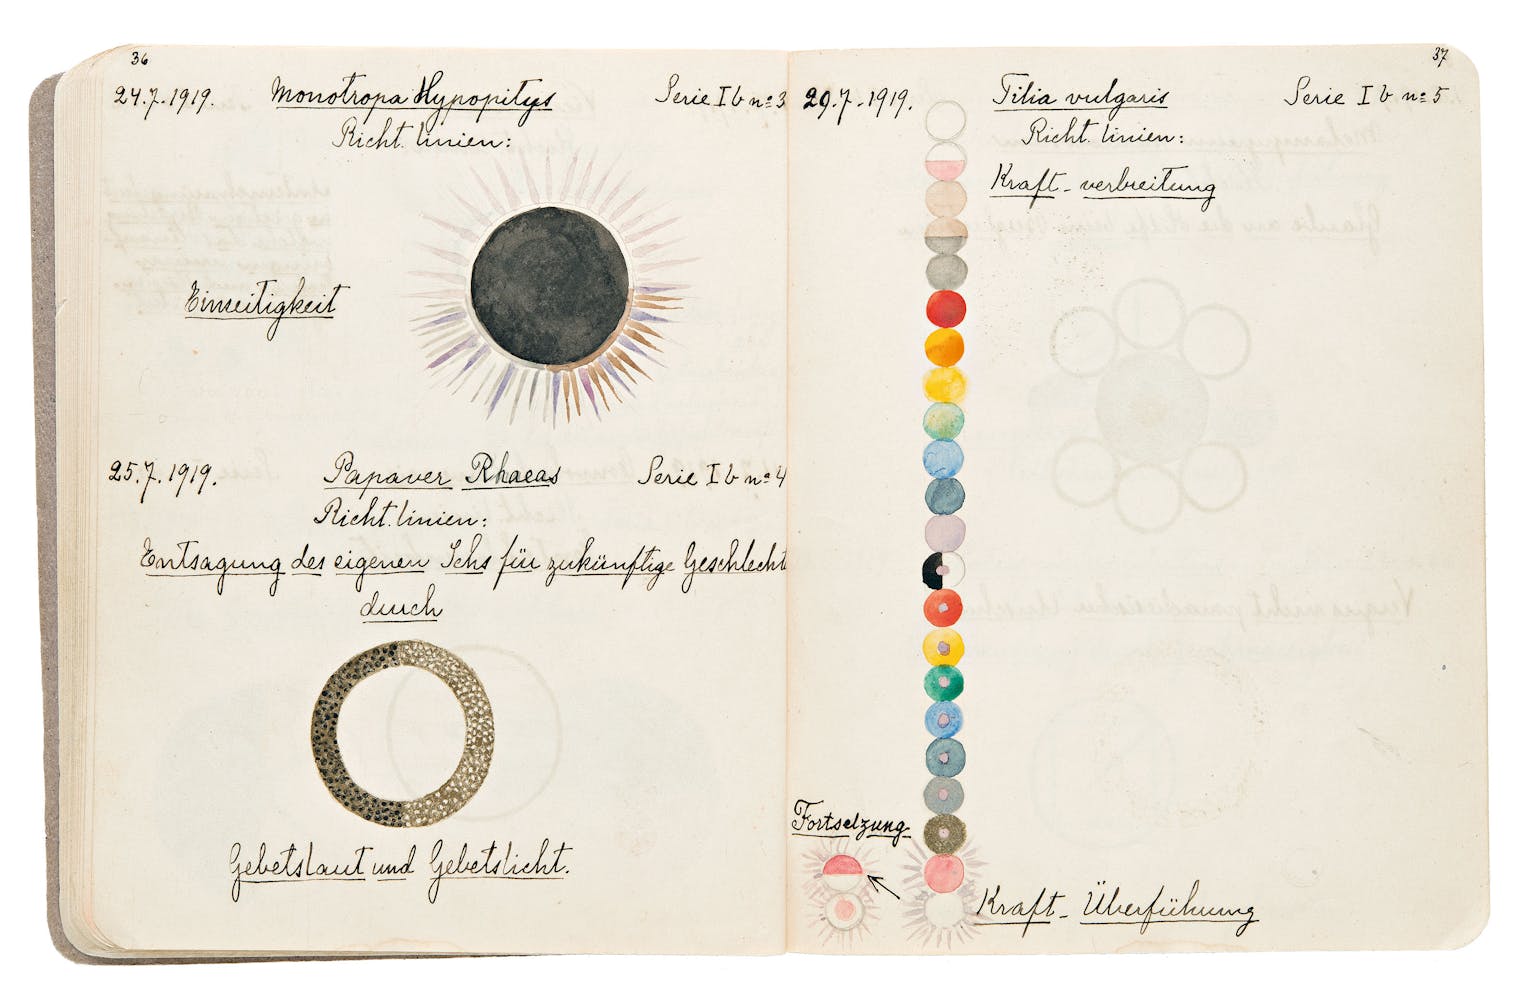 36
24.7.1919. Monotropa Hypopitys Serie I b nº 3
Richt.linien:
Einseitigkeit
25.7.1919. Papaver Rhoeas Serie I b nº 4
Richt.linien:
Entsagung des eigenen Ichs für zukünftige Geschlecht
durch
Gebetslaut und Gebetslicht.
37
29.7.1919. Tilia vulgaris Serie I b nº 5
Richt.linien:
Kraft-verbreitung
Fortsetzung
Kraft-Überführung